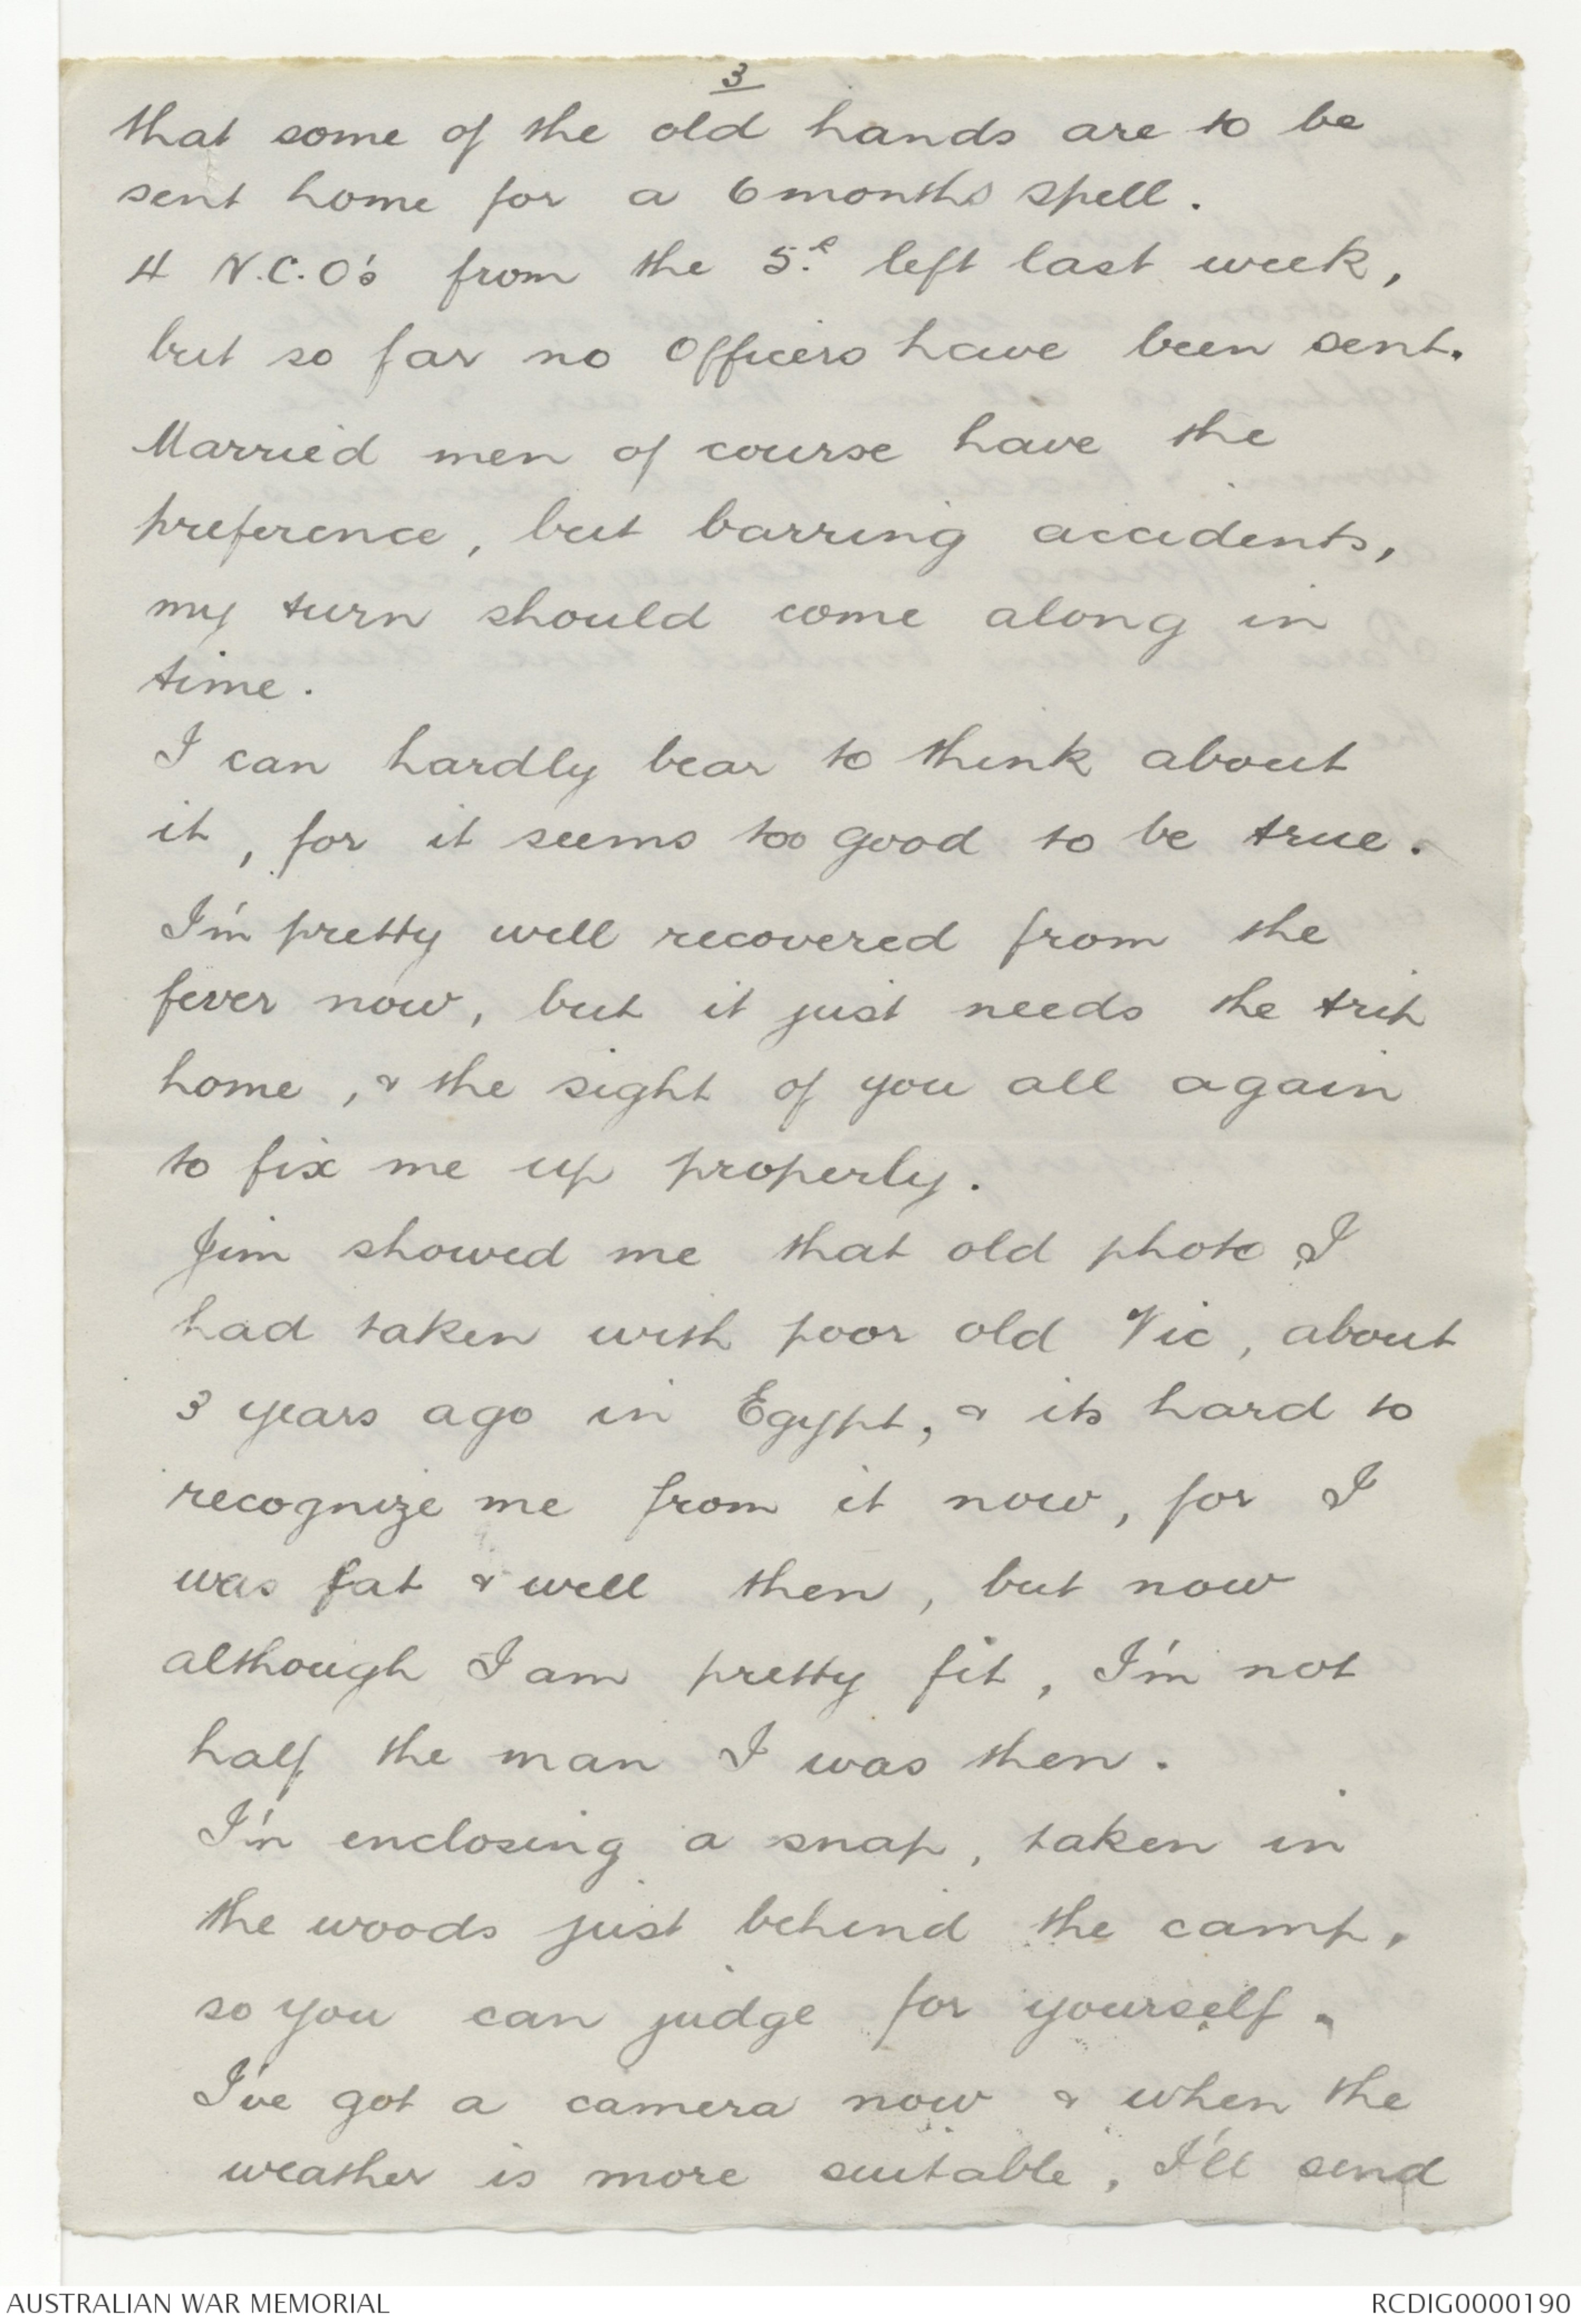 3
that some of the old hands are to be
sent home for a 6 months spell.
4 N.C.O's from the 5.e left last week,
but so far no Officers have been sent.
Married men of course have the
preference, but barring accidents,
my turn should come along in
time.
I can hardly bear to think about
it, for it seems too good to be true.
I'm pretty well recovered from the
fever now, but it just needs the trip
home, & the sight of you all again
to fix me up properly.
Jim showed me that old photo I
had taken with poor old Vic, about
3 years ago in Egypt, & its hard to
recognize me from it now, for I
was fat & well then, but now
although I am pretty fit, I'm not
half the man I was then.
I'm enclosing a snap, taken in
the woods just behind the camp,
so you can judge for yourself.
I've got a camera now & when the
weather is more suitable, I'll send
AUSTRALIAN WAR MEMORIAL
RCDIG0000190